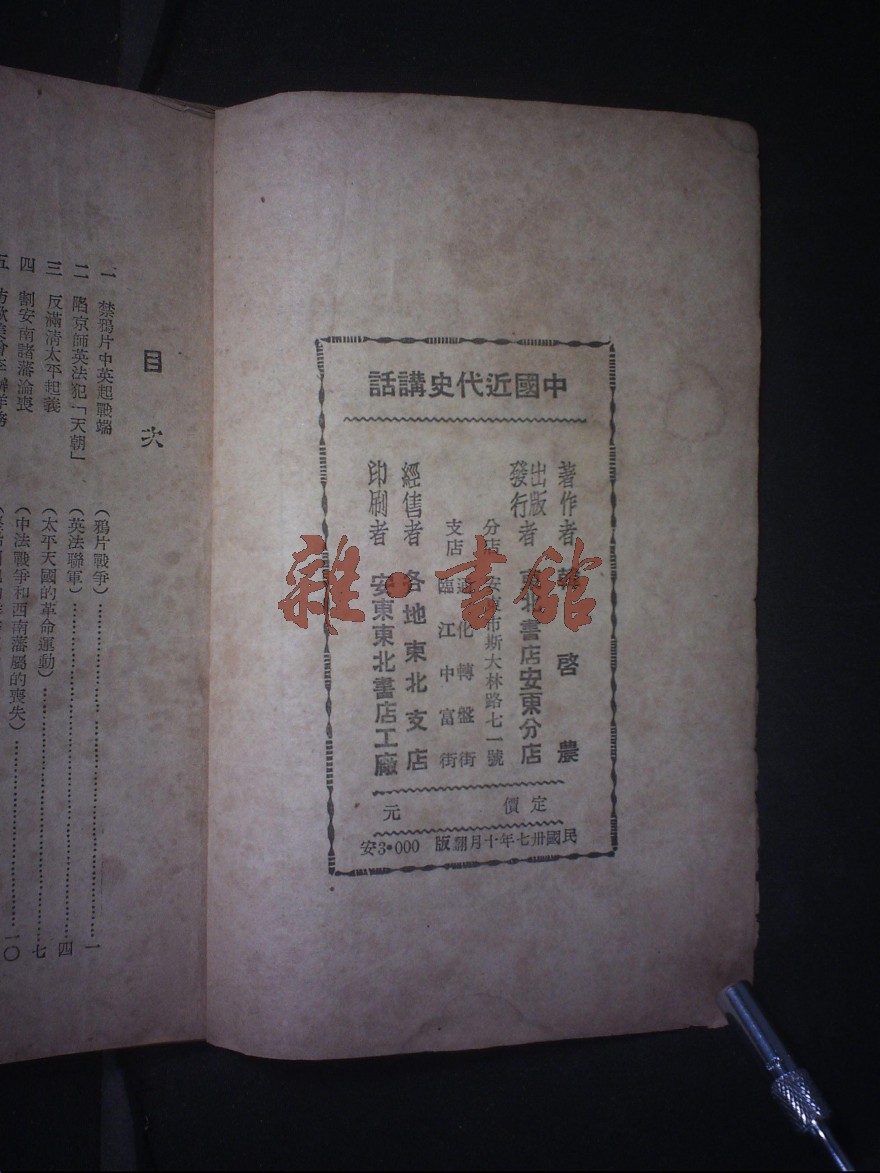 中國近代史講話
著作者 韓啓農
出版
發行者 東北書店安東分店
分店 安東市斯大林路七一號
支店 通化轉盤街
臨江中富街
經售者 各地東北支店
印刷者 安東東北書店工廠
定價 元
民國卅七年十月翻版 3.000安
目次
一 禁鴉片中英起戰端 (鴉片戰爭) 一
二 陷京師英法犯「天朝」 (英法聯軍) 四
三 反滿清太平起義 (太平天國的革命運動) 七
四 割安南諸藩淪喪 (中法戰爭和西南藩屬的喪失) 一〇
五
雜·書館